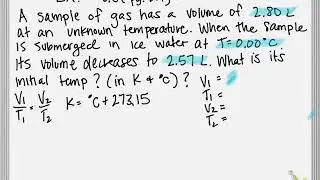 A sample of gas has a volume of 2.80 L
at an unknown temperature. When the sample
is submerged in ice water at T=0.00°C
its volume decreases to 2.57 L. What is its
initial temp? (in K & °C)?
V₁ =
V₁/T₁ = V₂/T₂ K = °C + 273.15
T₁ =
V₂ =
T₂ =